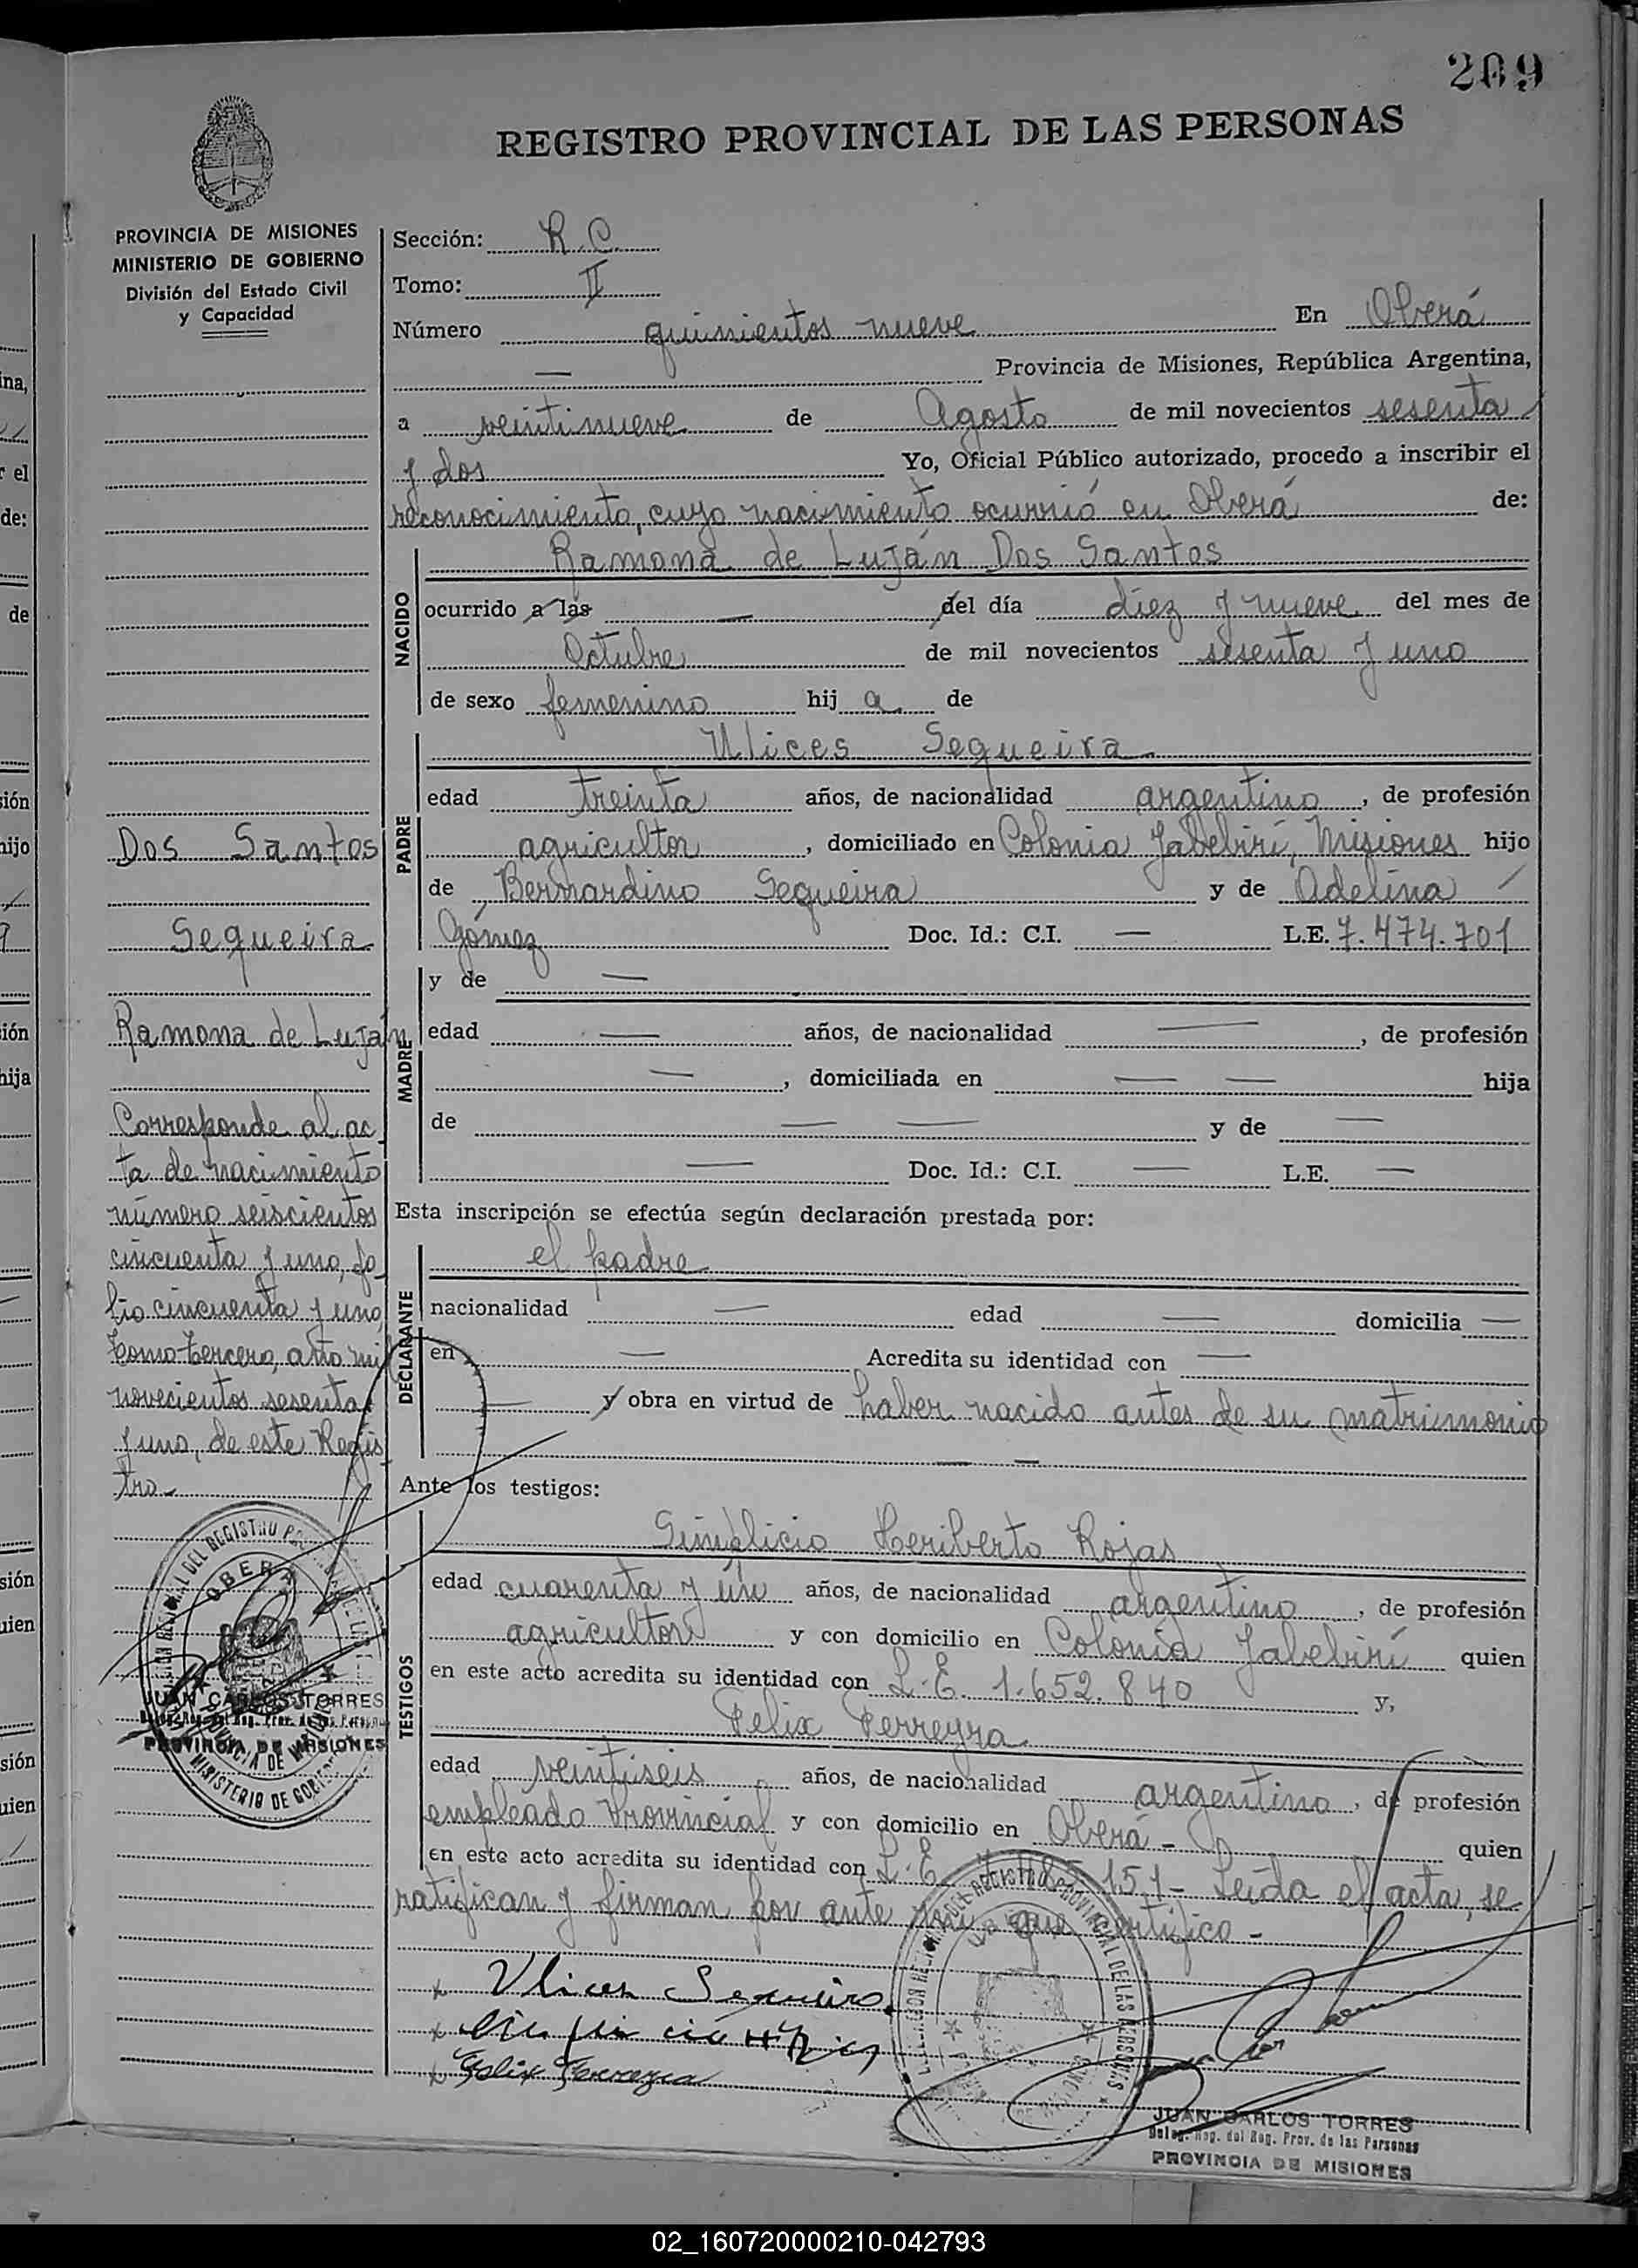 209
REGISTRO PROVINCIAL DE LAS PERSONAS
PROVINCIA DE MISIONES
MINISTERIO DE GOBIERNO
División del Estado Civil
y Capacidad
Dos Santos
Sequeira
Ramona de Luján
Corresponde al ac
ta de nacimiento
número seiscientos
cincuenta y uno, fo
lio cincuenta y uno,
tomo tercero, año mil
novecientos sesenta
y uno, de este Regis
tro.-
OBERA
JUAN CARLOS TORRES
PROVINCIA DE MISIONES
MINISTERIO DE GOBIERNO
Sección: R.C.
Tomo: II
Número quinientos nueve En Oberá
— Provincia de Misiones, República Argentina,
a veintinueve de Agosto de mil novecientos sesenta
y dos Yo, Oficial Público autorizado, procedo a inscribir el
reconocimiento, cuyo nacimiento ocurrió en Oberá de:
NACIDO
Ramona de Luján Dos Santos
ocurrido a las — del día diez y nueve del mes de
Octubre de mil novecientos sesenta y uno
de sexo femenino hij a de
PADRE
Ulices Sequeira
edad treinta años, de nacionalidad argentino, de profesión
agricultor, domiciliado en Colonia Yabebirí, Misiones hijo
de Bernardino Sequeira y de Adelina
Gómez Doc. Id.: C.I. — L.E. 7.474.701
MADRE
y de —
edad — años, de nacionalidad —, de profesión
—, domiciliada en — — hija
de — — y de —
— Doc. Id.: C.I. — L.E. —
Esta inscripción se efectúa según declaración prestada por:
DECLARANTE
el padre
nacionalidad — edad — domicilia —
en — Acredita su identidad con —
— y obra en virtud de haber nacido antes de su matrimonio
— —
Ante los testigos:
TESTIGOS
Simplicio Heriberto Rojas
edad cuarenta y un años, de nacionalidad argentino, de profesión
agricultor y con domicilio en Colonia Yabebirí quien
en este acto acredita su identidad con L.E. 1.652.840 y,
Felix Ferreyra
edad veintiseis años, de nacionalidad argentino, de profesión
empleado Provincial y con domicilio en Oberá - quien
en este acto acredita su identidad con L.E. 151 - Leída el acta, se
ratifican y firman por ante mi que certifico -
x Ulices Sequeira
x
x Felix Ferreyra
JUAN CARLOS TORRES
Deleg. Reg. del Reg. Prov. de las Personas
PROVINCIA DE MISIONES
02_160720000210-042793